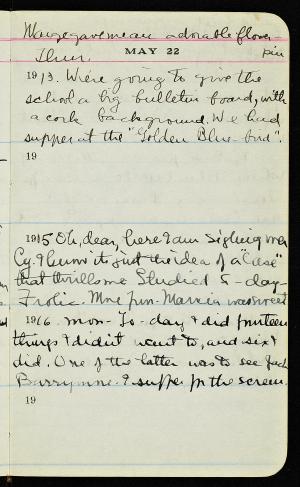 gave me an adorable flower
Thur. MAY 22 pin
1913. We're going to give the
school a big bulletin board, with
a cork background. We had
supper at the "Golden Blue-bird".
19
1915 Oh, dear, here I am sighing over
Cy. I it just the idea of a "Case"
that thrills me. Studied 5 - day -
Frolic. Mme was sweet
1916. Mon - To-day I did fourteen
things I didn't want to, and six I
did. One of the latter was to see Jack
Barrymore. I suffer for the screen.
19